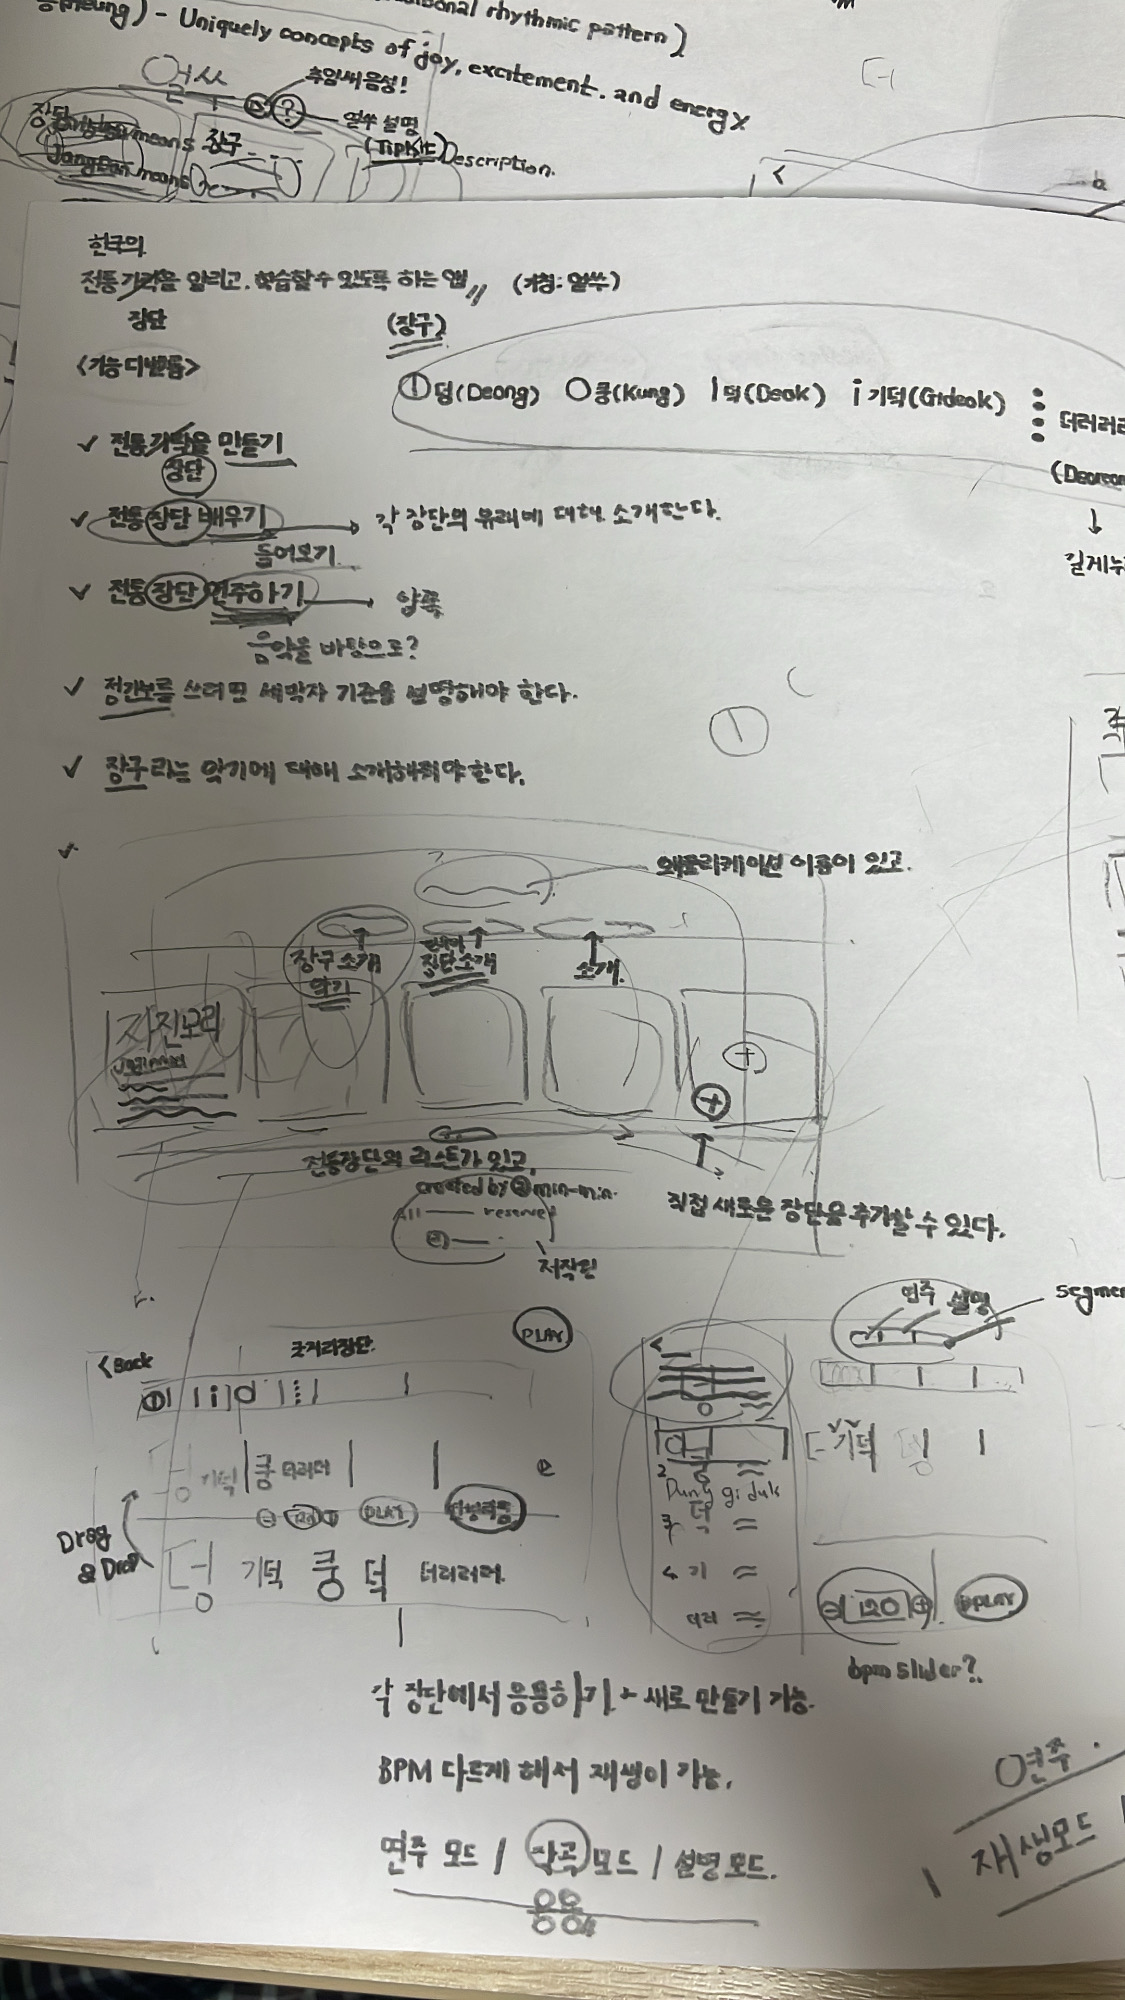 rhythmic pattern)
- Uniquely concepts of joy, excitement. and energy
얼쑤
추임새 음성!
?
얼쑤 설명
(TipKit) Description.
장구
Jangdan means
한국의
전통가락을 알리고, 학습할 수 있도록 하는 앱 (가칭: 얼쑤)
장단
(장구)
<기능 디벨롭>
덩(Deong) 쿵(Kung) 덕(Deok) 기덕(Gideok)
더러러러
✓ 전통가락을 만들기
장단
✓ 전통 장단 배우기 → 각 장단의 유래에 대해 소개한다.
들어보기
✓ 전통 장단 연주하기 →
음악을 바탕으로?
✓ 정간보를 쓰려면 세박자 기준을 설명해야 한다.
✓ 장구라는 악기에 대해 소개해줘야 한다.
✓
애플리케이션 이름이 있고.
장구 소개
악기
장단 소개
소개.
자진모리
+
+
전통장단의 리스트가 있고,
created by @min-min.
All reserved
저작권
직접 새로운 장단을 추가할 수 있다.
연주 설명
PLAY
<Back
굿거리장단.
기덕 쿵 더러러
PLAY
Drag & Drop
덩 기덕 쿵 덕 더러러러.
<
Dung gi duk
덕
기
더러
기덕 덩
120
PLAY
bpm slider?
각 장단에서 응용하기 → 새로 만들기 가능.
BPM 다르게 해서 재생이 가능.
연주 모드 / 작곡 모드 / 설명 모드.
응용
연주.
재생모드